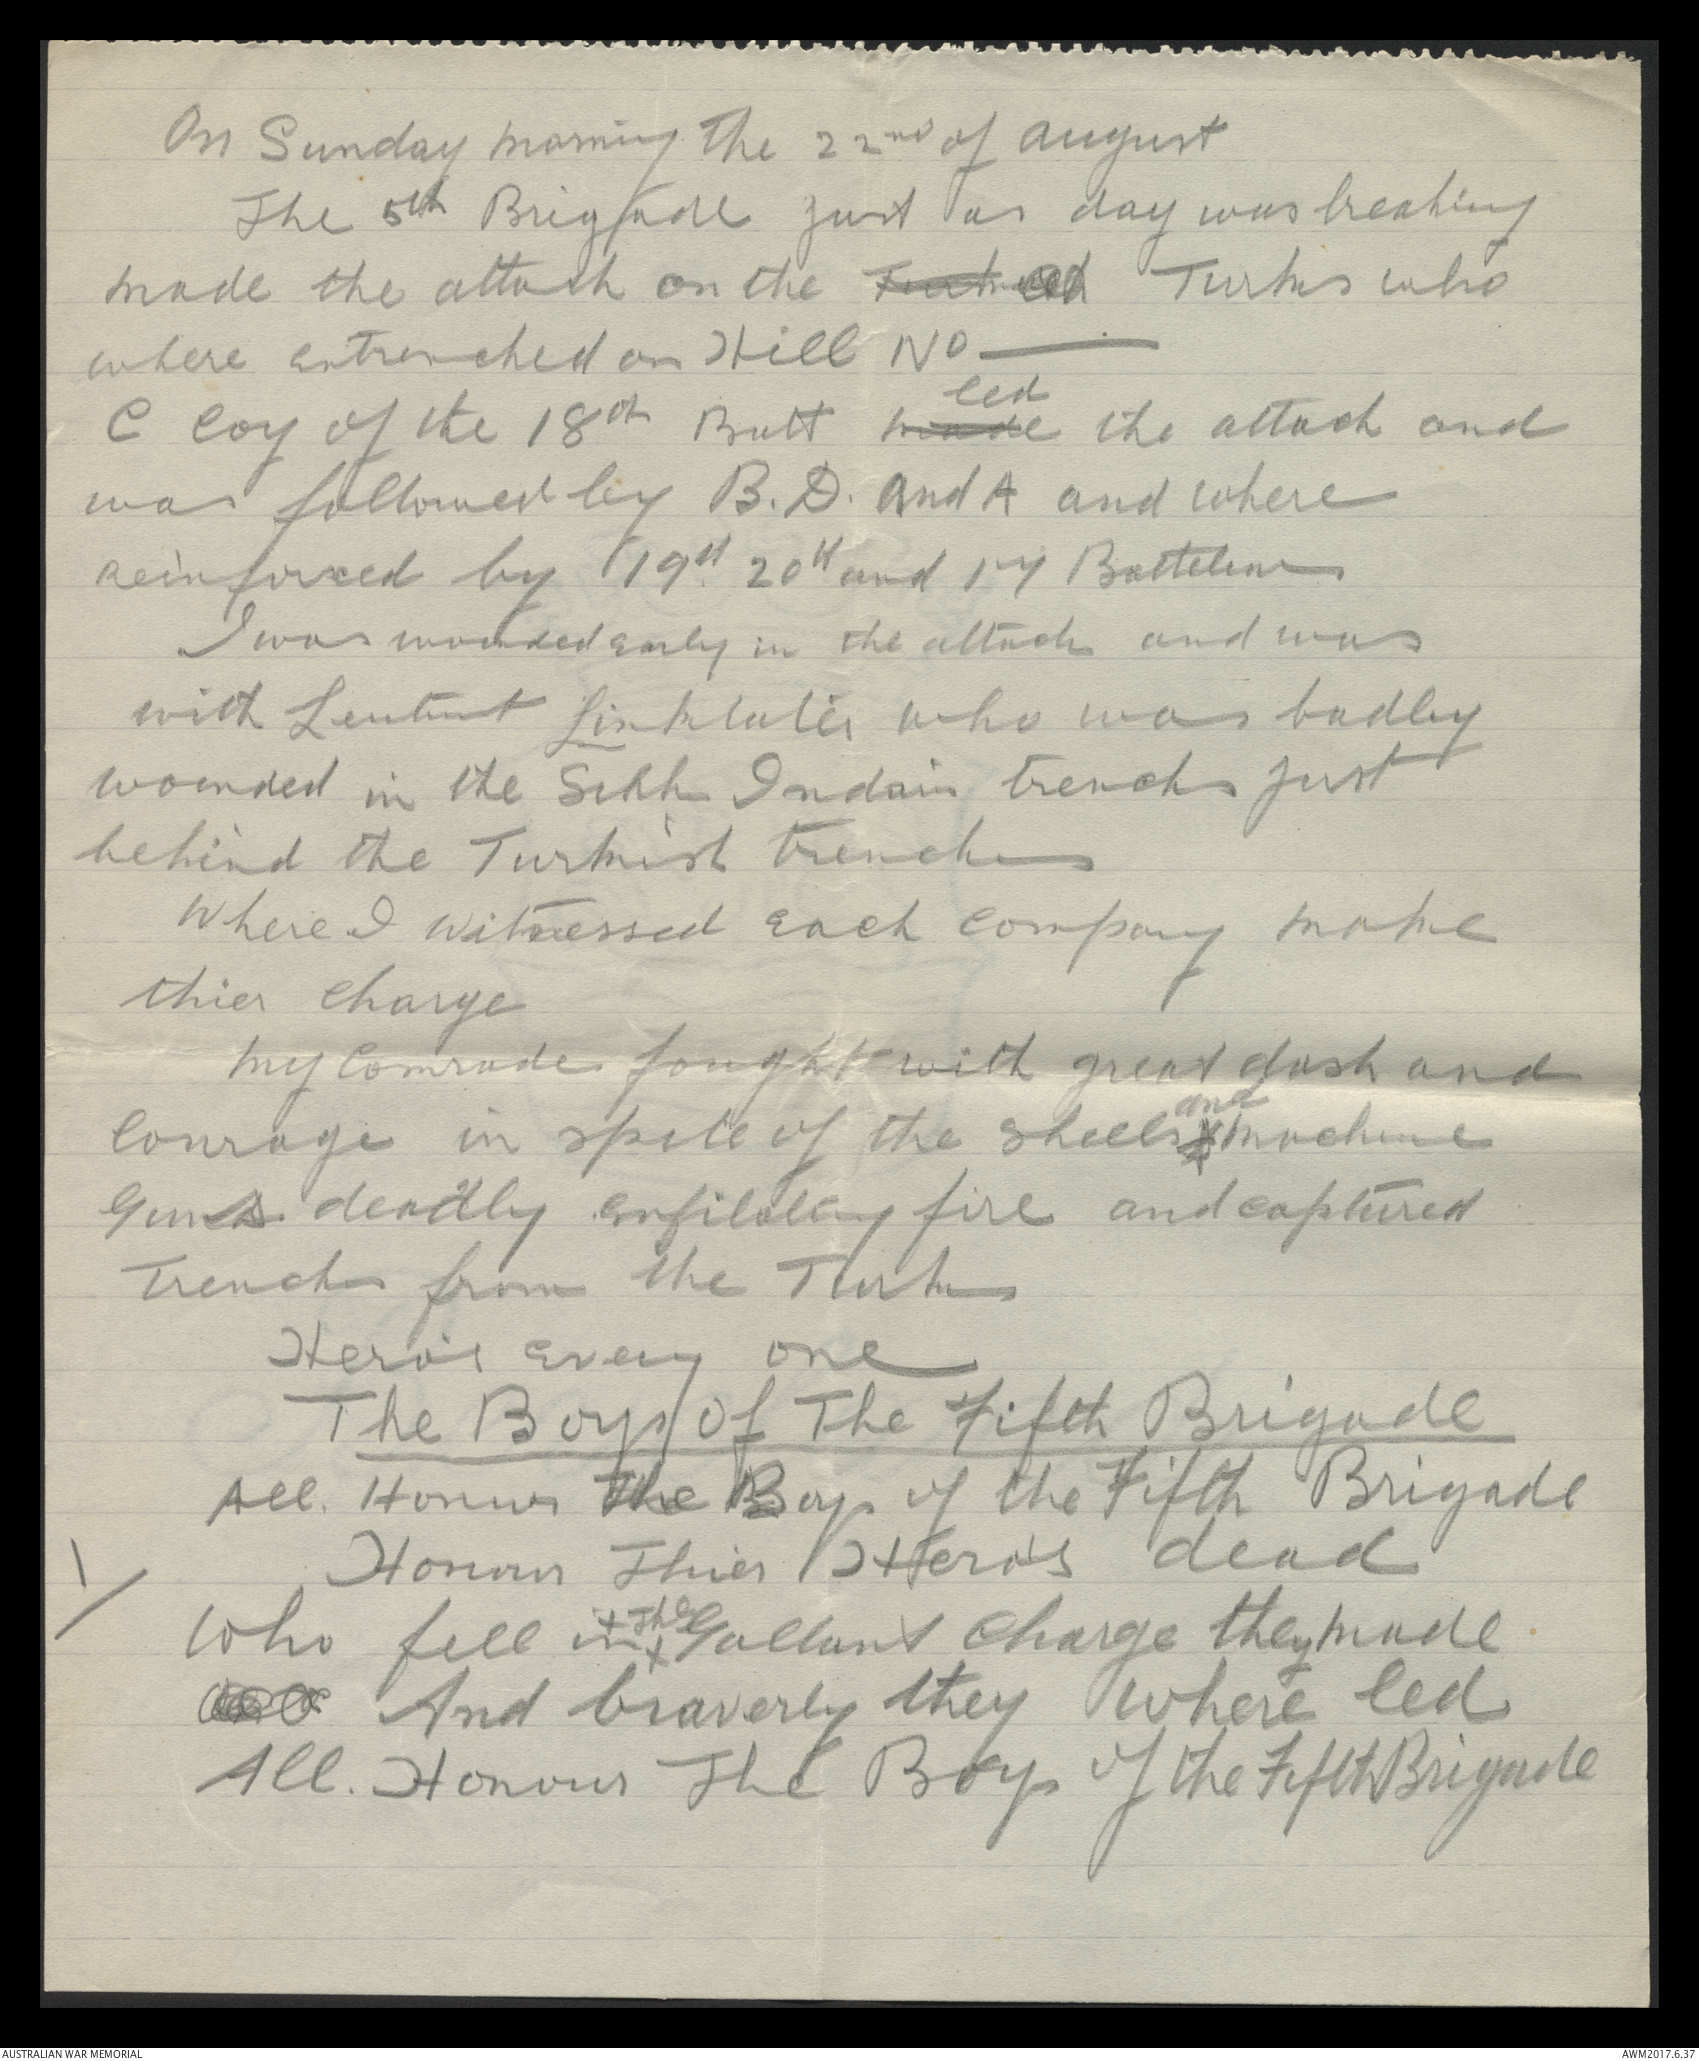 On Sunday morning the 22nd of august
The 5th Brigade just as day was breaking
made the attack on the Turks who
where entrenched on Hill No ——
C Coy of the 18th Batt made led the attack and
was followed by B. D. and A and where
reinforced by 19th 20th and 17 Battelions
I was wounded early in the attack and was
with Leutent Linklater who was badley
wounded in the Sikh Indain trenchs just
behind the Turkish trenches
Where I witnessed each company make
thier charge
My Comrades fought with great dash and
Courage in spite of the shells and machine
Guns deadly enfilating fire and captured
Trenchs from the Turks
Hero's every one
The Boys of The Fifth Brigade
All. Honour The Boys of the Fifth Brigade
Honour Thier Hero's dead
1/
Who fell in The Gallant Charge they made
And braverly they where led
All. Honour The Boys of the Fifth Brigade
AUSTRALIAN WAR MEMORIAL
AWM2017.6.37